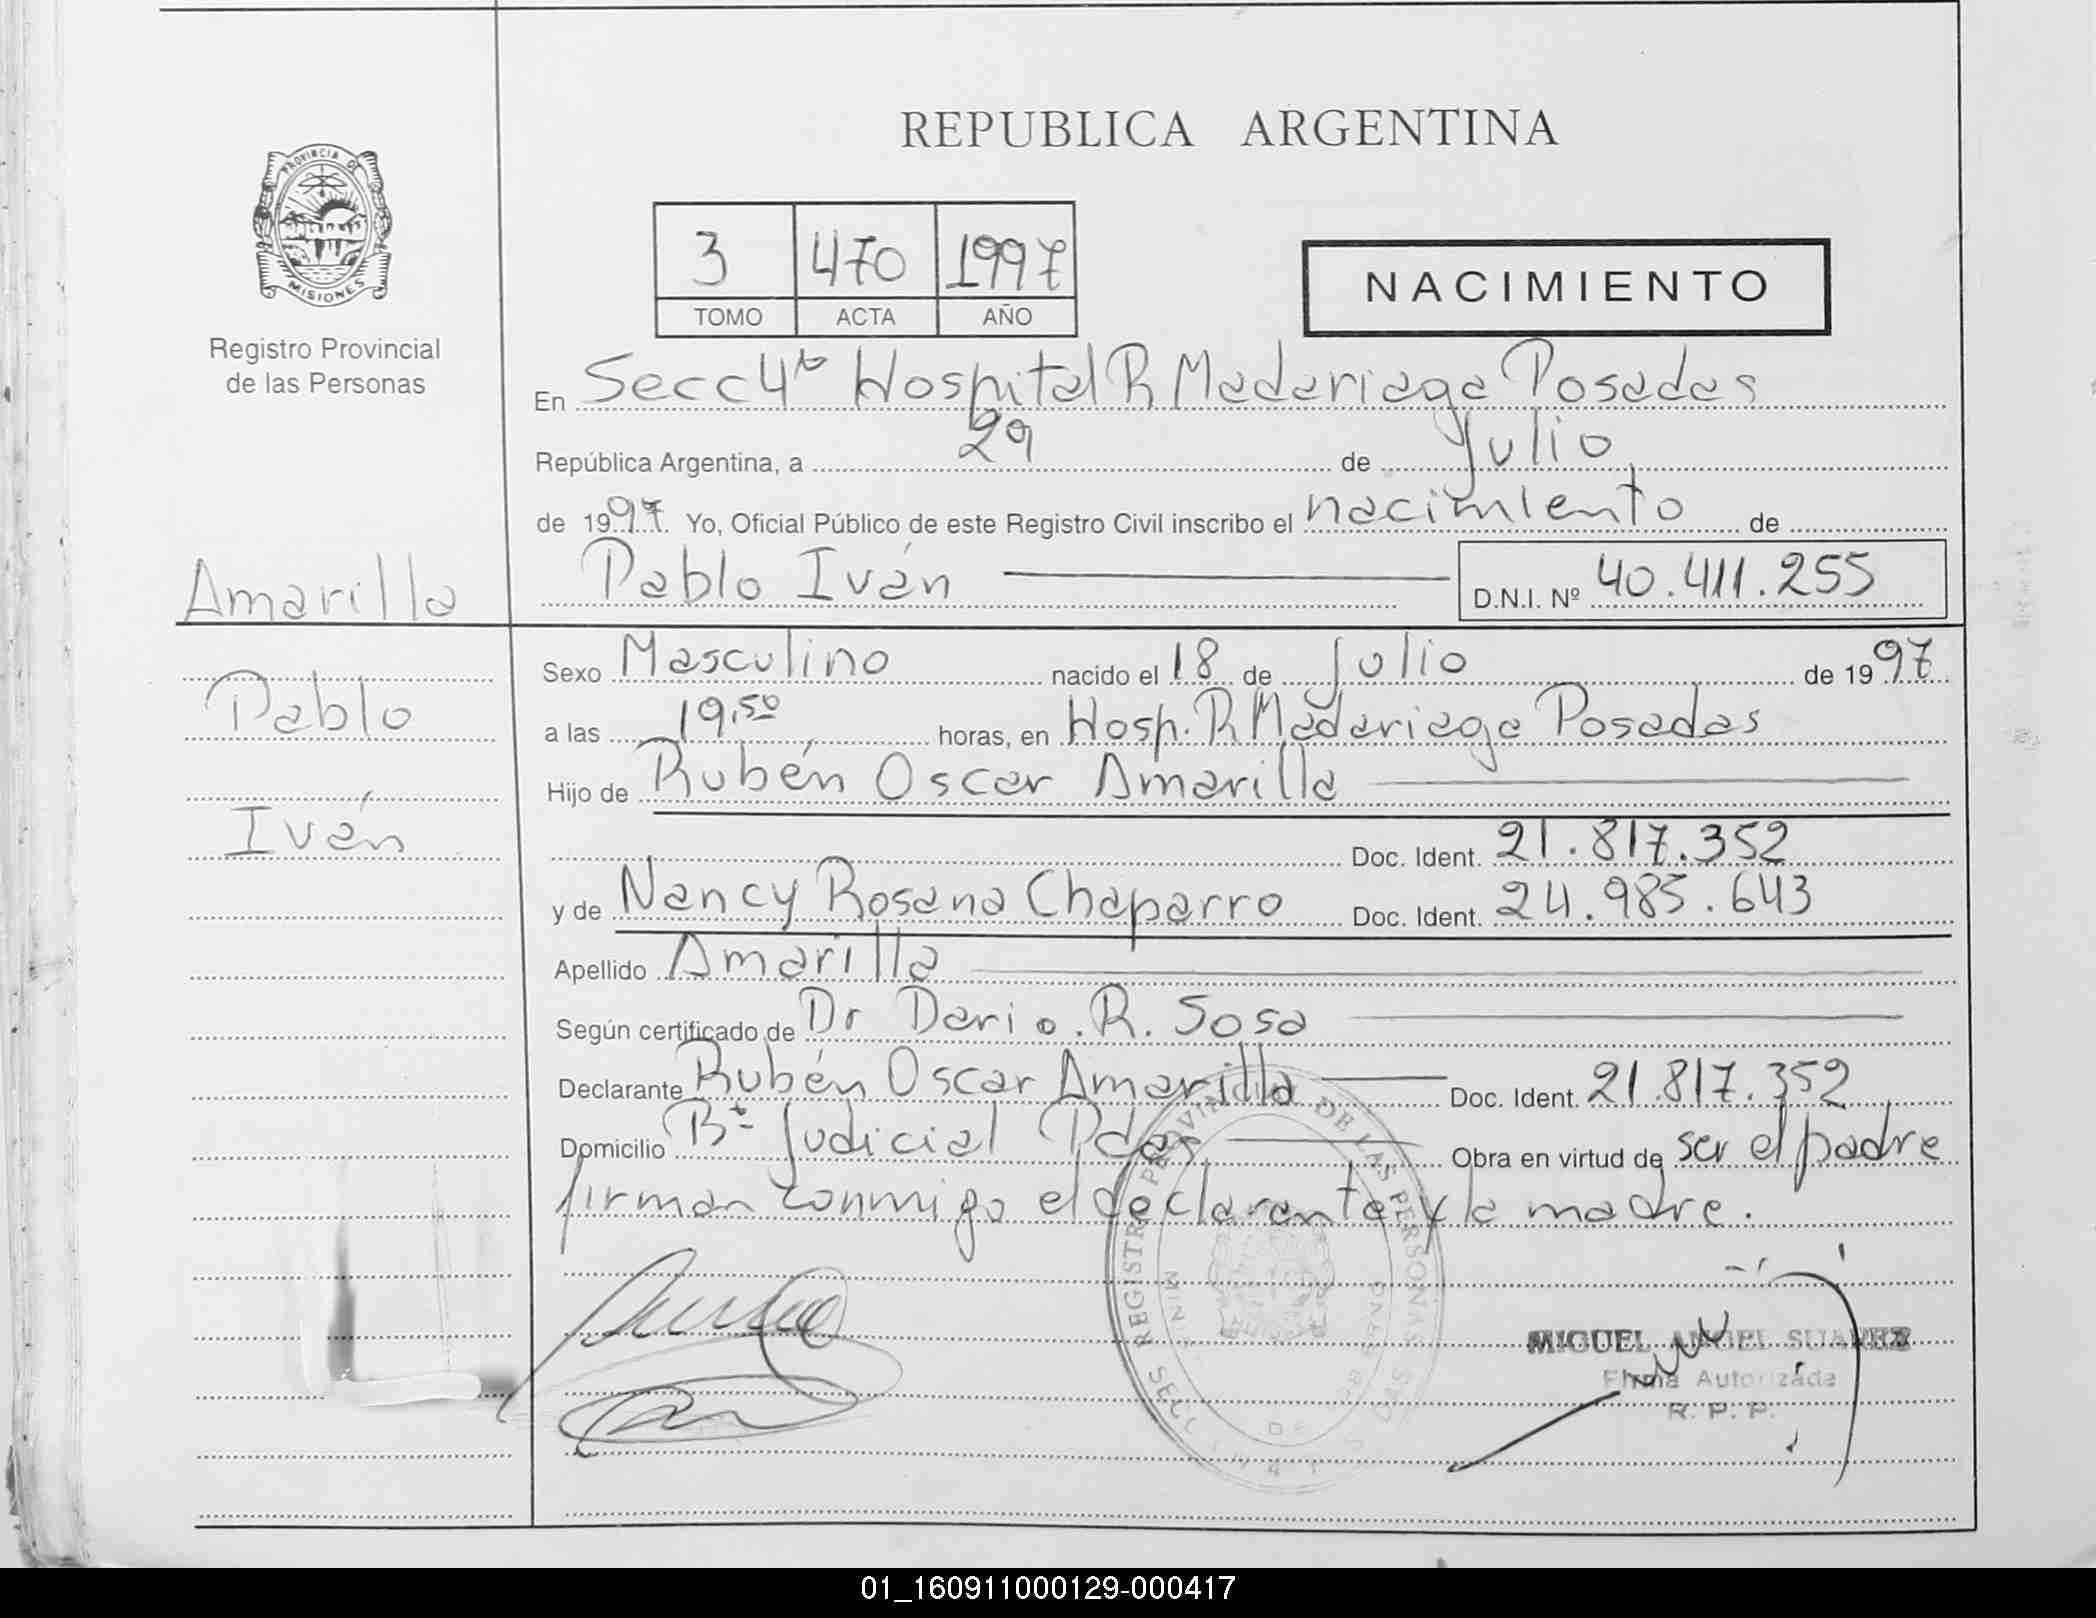 REPUBLICA ARGENTINA
PROVINCIA DE
MISIONES
Registro Provincial
de las Personas
3 470 1997
TOMO ACTA AÑO
NACIMIENTO
En Secc 4ta Hospital R Madariaga Posadas
República Argentina, a 29 de Julio
de 1997. Yo, Oficial Público de este Registro Civil inscribo el nacimiento de
Pablo Iván D.N.I. Nº 40.411.255
Amarilla
Pablo
Iván
Sexo Masculino nacido el 18 de Julio de 1997
a las 19,50 horas, en Hosp. R Madariaga Posadas
Hijo de Rubén Oscar Amarilla
Doc. Ident. 21.817.352
y de Nancy Rosana Chaparro Doc. Ident. 24.985.643
Apellido Amarilla
Según certificado de Dr Dario. R. Sosa
Declarante Rubén Oscar Amarilla Doc. Ident. 21.817.352
Domicilio Bº Judicial Pdas Obra en virtud de ser el padre
firman conmigo el declarante y la madre.
REGISTRO PROVINCIAL DE LAS PERSONAS
MIGUEL ANGEL SUAREZ
Firma Autorizada
R. P. P.
01_160911000129-000417